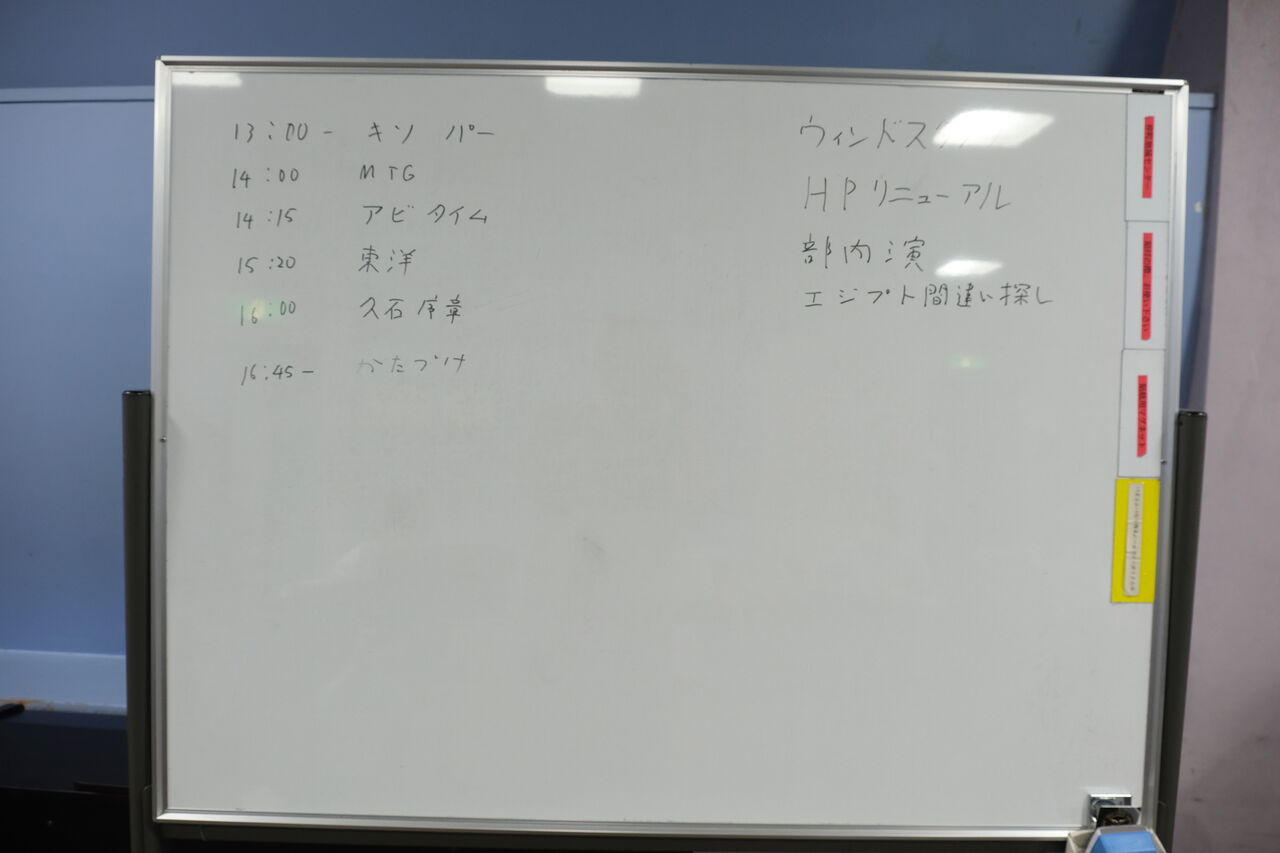 13:00 - キソ パー
14:00 MTG
14:15 アビタイム
15:20 東洋
16:00 久石 序章
16:45 - かたづけ
HPリニューアル
部内演
エジプト間違い探し